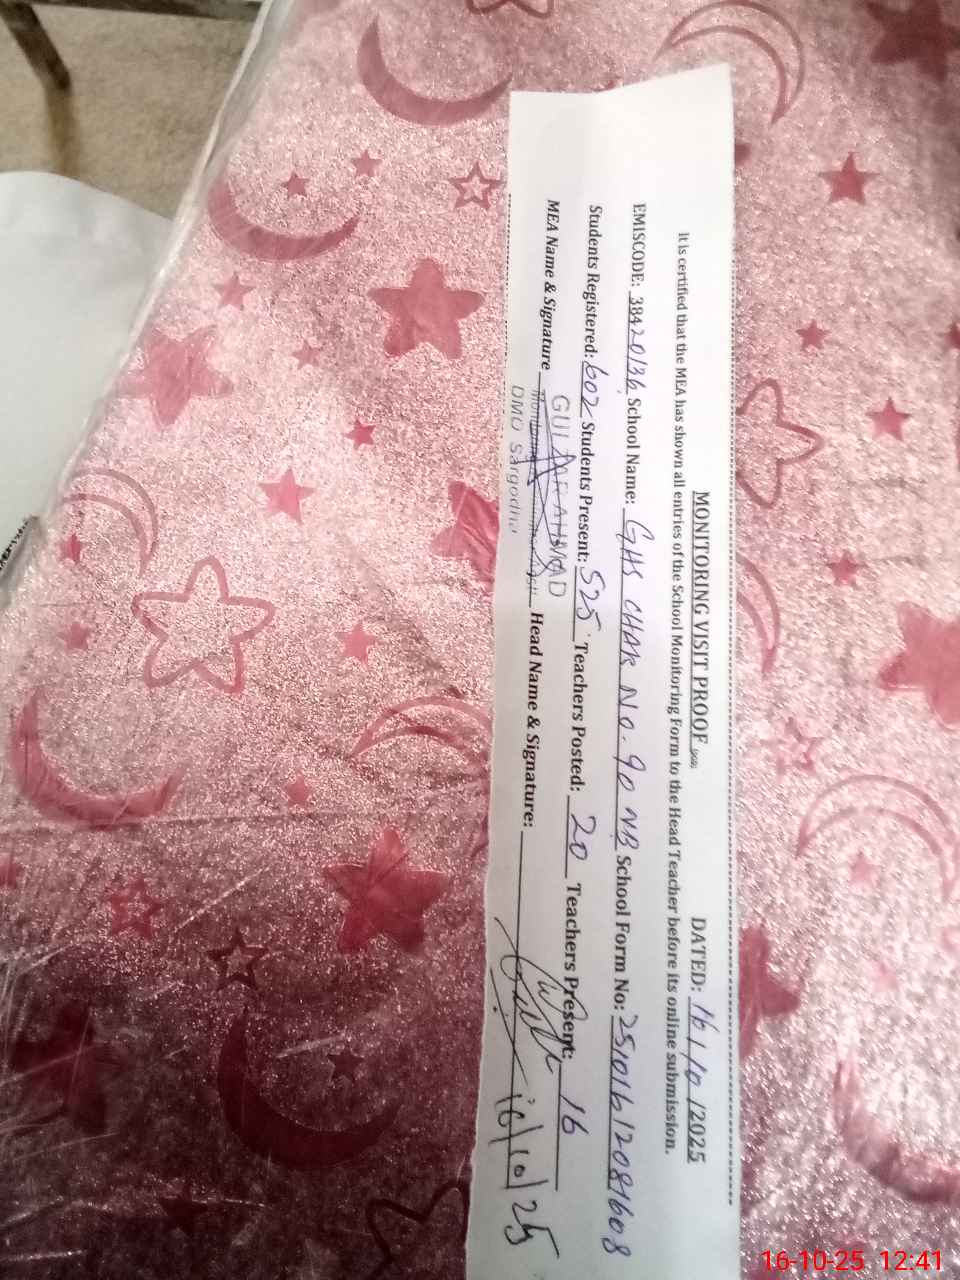 MONITORING VISIT PROOF DATED: 16/10/2025
It is certified that the MEA has shown all entries of the School Monitoring Form to the Head Teacher before its online submission.
EMISCODE: 38420136 School Name: GHS CHAK No. 90 NB School Form No: 25101612081608
Students Registered: 602 Students Present: 525 Teachers Posted: 20 Teachers Present: 16
MEA Name & Signature Head Name & Signature:
AHMAD
DMO Sargodha
16/10/25
16-10-25 12:41